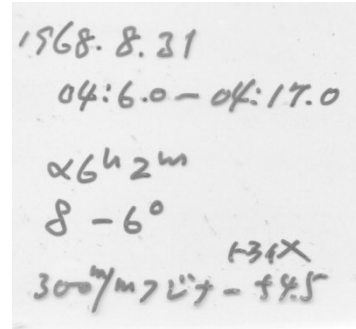 1968.8.31
04:6.0-04:17.0
α6ʰ2ᵐ
δ-6°
トライX
300m/mフジナーf4.5